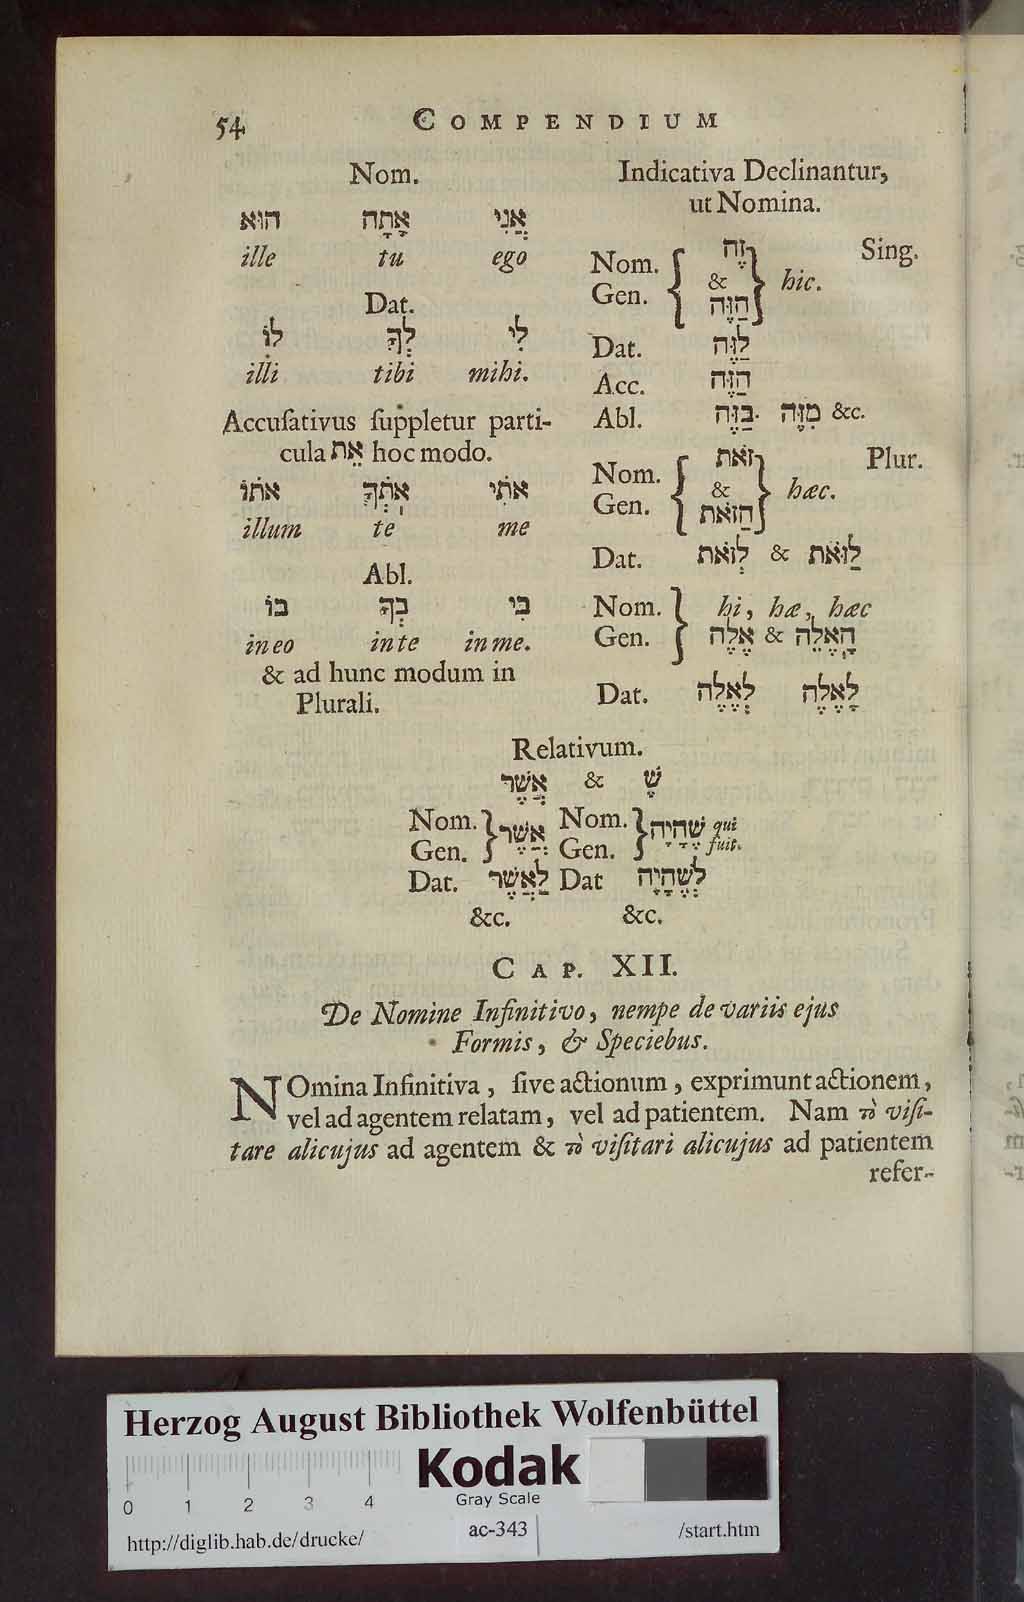 54 COMPENDIUM
Nom.
הוּא אָתָּה אֲנִי
ille tu ego
Dat.
לוֹ לְךָ לִי
illi tibi mihi.
Accuſativus ſuppletur parti-
cula אֵת hoc modo.
אֹתוֹ אֹתְךָ אֹתִי
illum te me
Abl.
בּוֹ בְּךָ בִּי
in eo in te in me.
& ad hunc modum in
Plurali.
Indicativa Declinantur,
ut Nomina.
Sing.
Nom. Gen. { זֶה & הַזֶּה } hic.
Dat. לַזֶּה
Acc. הַזֶּה
Abl. בַּזֶּה. מִזֶּה &c.
Plur.
Nom. Gen. { זֹאת & הַזֹּאת } hæc.
Dat. לְזֹאת & לַזֹּאת
Nom. } hi, hæ, hæc
Gen. } אֵלֶּה & הָאֵלֶּה
Dat. לְאֵלֶּה לָאֵלֶּה
Relativum.
אֲשֶׁר & שֶׁ
Nom. Gen. } אֲשֶׁר Nom. Gen. } שֶׁהָיָה qui fuit.
Dat. לַאֲשֶׁר Dat לְשֶׁהָיָה
&c. &c.
CAP. XII.
De Nomine Infinitivo, nempe de variis ejus
Formis, & Speciebus.
NOmina Infinitiva, ſive actionum, exprimunt actionem,
vel ad agentem relatam, vel ad patientem. Nam τὸ viſi-
tare alicujus ad agentem & τὸ viſitari alicujus ad patientem
refer-
Herzog August Bibliothek Wolfenbüttel
Kodak
Gray Scale
0 1 2 3 4
http://diglib.hab.de/drucke/ ac-343 /start.htm